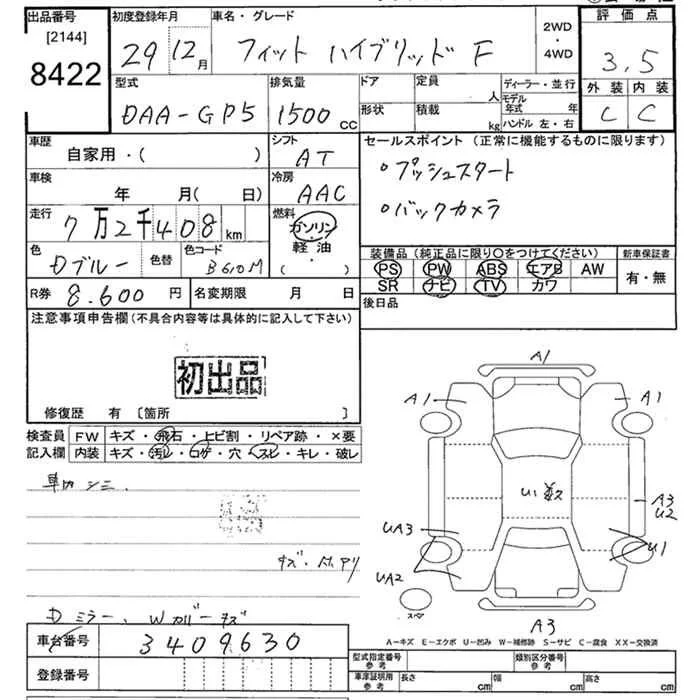 出品番号
[2144]
8422
初度登録年月
29 12月
車名・グレード
フィット ハイブリッド F
2WD
・
4WD
評価点
3,5
外装 内装
C C
型式
DAA-GP5
排気量
1500cc
ドア
形状
定員
人
積載
kg
ディーラー・並行
モデル年式 年
ハンドル 左・右
車歴
自家用・( )
シフト
AT
車検
年 月(日)
冷房
AAC
走行
7万2千408km
燃料
ガソリン
軽油
( ・ )
色
Dブルー
色替
色コード
B610M
R券 8.600円
名変期限 月 日
セールスポイント(正常に機能するものに限ります)
○プッシュスタート
○バックカメラ
装備品(純正品に限り○をつけてください)
PS PW ABS エアB AW
SR ナビ TV カワ
新車保証書
有・無
後日品
注意事項申告欄(不具合内容等は具体的に記入して下さい)
初出品
修復歴 有 [箇所 ]
検査員記入欄
FW キズ・飛石・ヒビ割・リペア跡・×要
内装 キズ・汚レ・コゲ・穴・スレ・キレ・破レ
車内シミ.
キズ・凹アリ
Dミラー、Wカバーキズ
車台番号 3409630
登録番号
A1
A1
A1
U1
A3
U2
UA3
UA2
U1
スペア
A3
A-キズ E-エクボ U-凹み W-補修跡 S-サビ C-腐食 XX-交換済
型式指定番号 参考
類別区分番号 参考
車庫証明用 参考
長さ cm
幅 cm
高さ cm